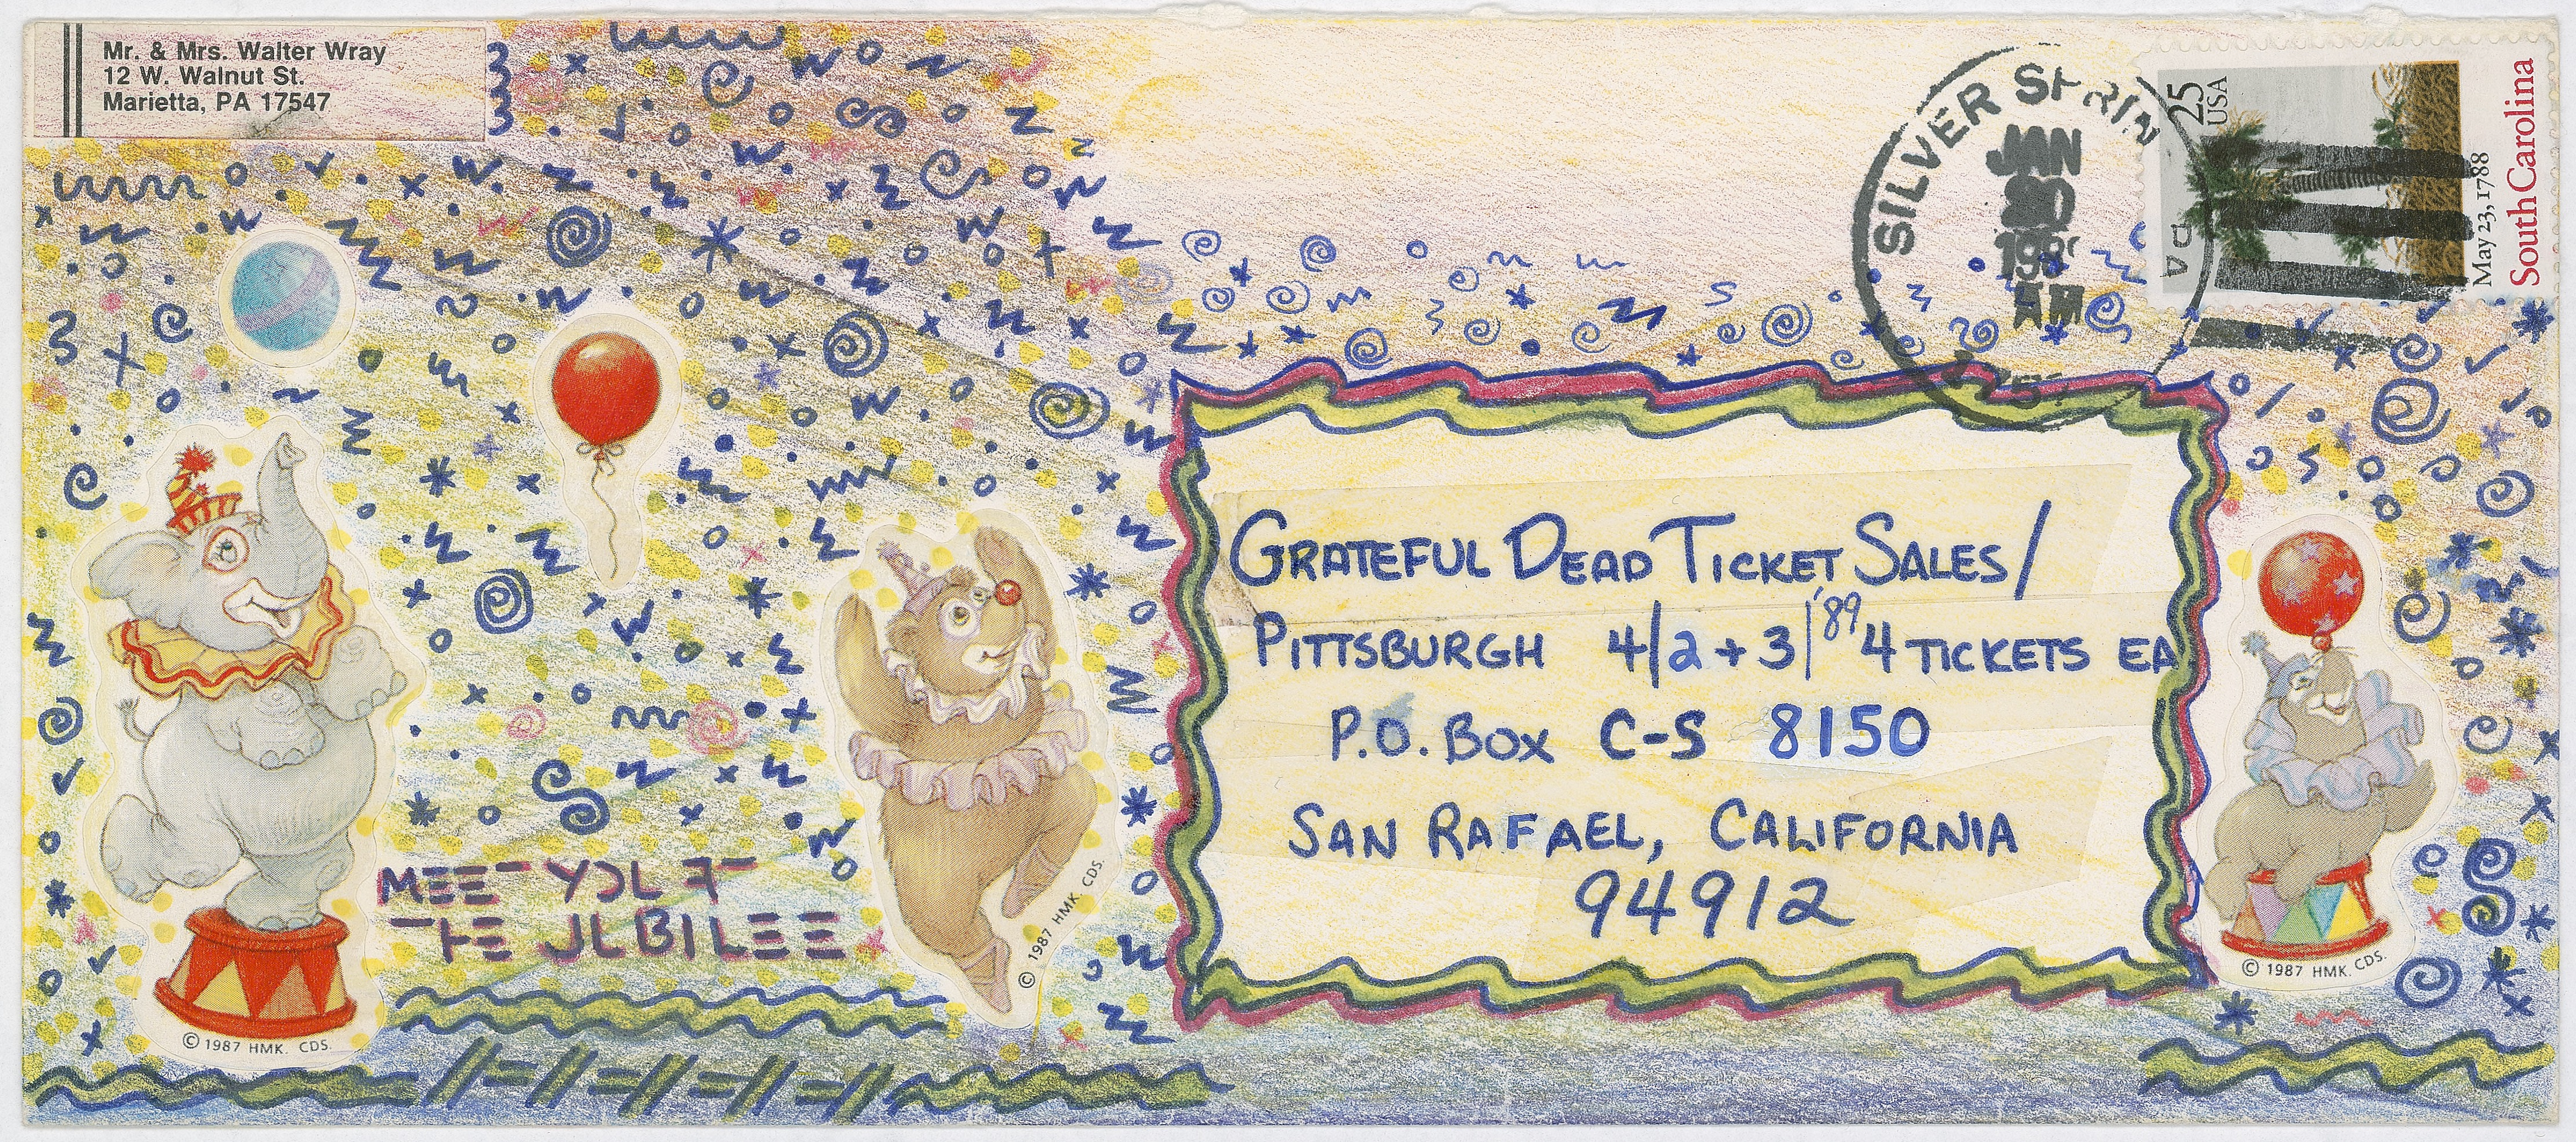 Mr. & Mrs. Walter Wray
12 W. Walnut St.
Marietta, PA 17547
SILVER SPRIN
JAN
AM
25
USA
May 23, 1788
South Carolina
GRATEFUL DEAD TICKET SALES/
PITTSBURGH 4/2 + 3/'89 4 TICKETS EA
P.O. BOX C-S 8150
SAN RAFAEL, CALIFORNIA
94912
MEET YOU AT
THE JUBILEE
© 1987 HMK. CDS.
© 1987 HMK. CDS.
© 1987 HMK. CDS.